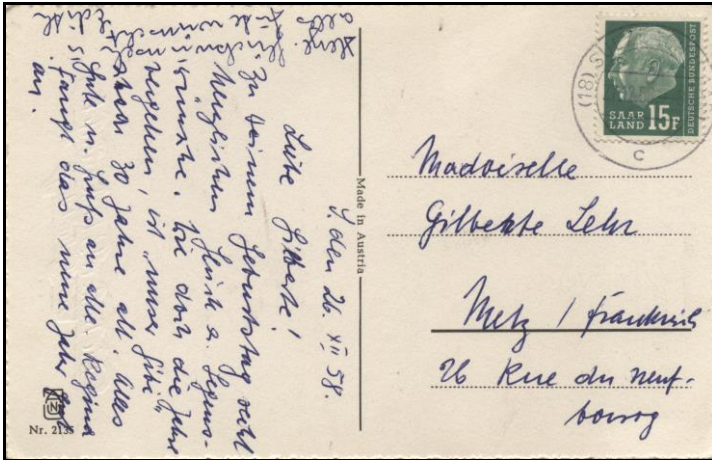 S. den 26. XII 58.
Liebe Gilberte!
Zu deinem Geburtstag recht
herzlichen Glück- u. Segens-
wünsche. Wie doch die Jahre
vergehen, ist unser Gibi
schon 30 Jahre alt. Alles
Gute u. Gruß an alle Regina
fängt das neue Jahr gut
an.
Made in Austria
Nr. 2135
(18) S
c
SAAR
LAND 15F
DEUTSCHE BUNDESPOST
Madoiselle
Gilberte Lehr
Metz / Frankreich
26 Rue du neuf-
bourg